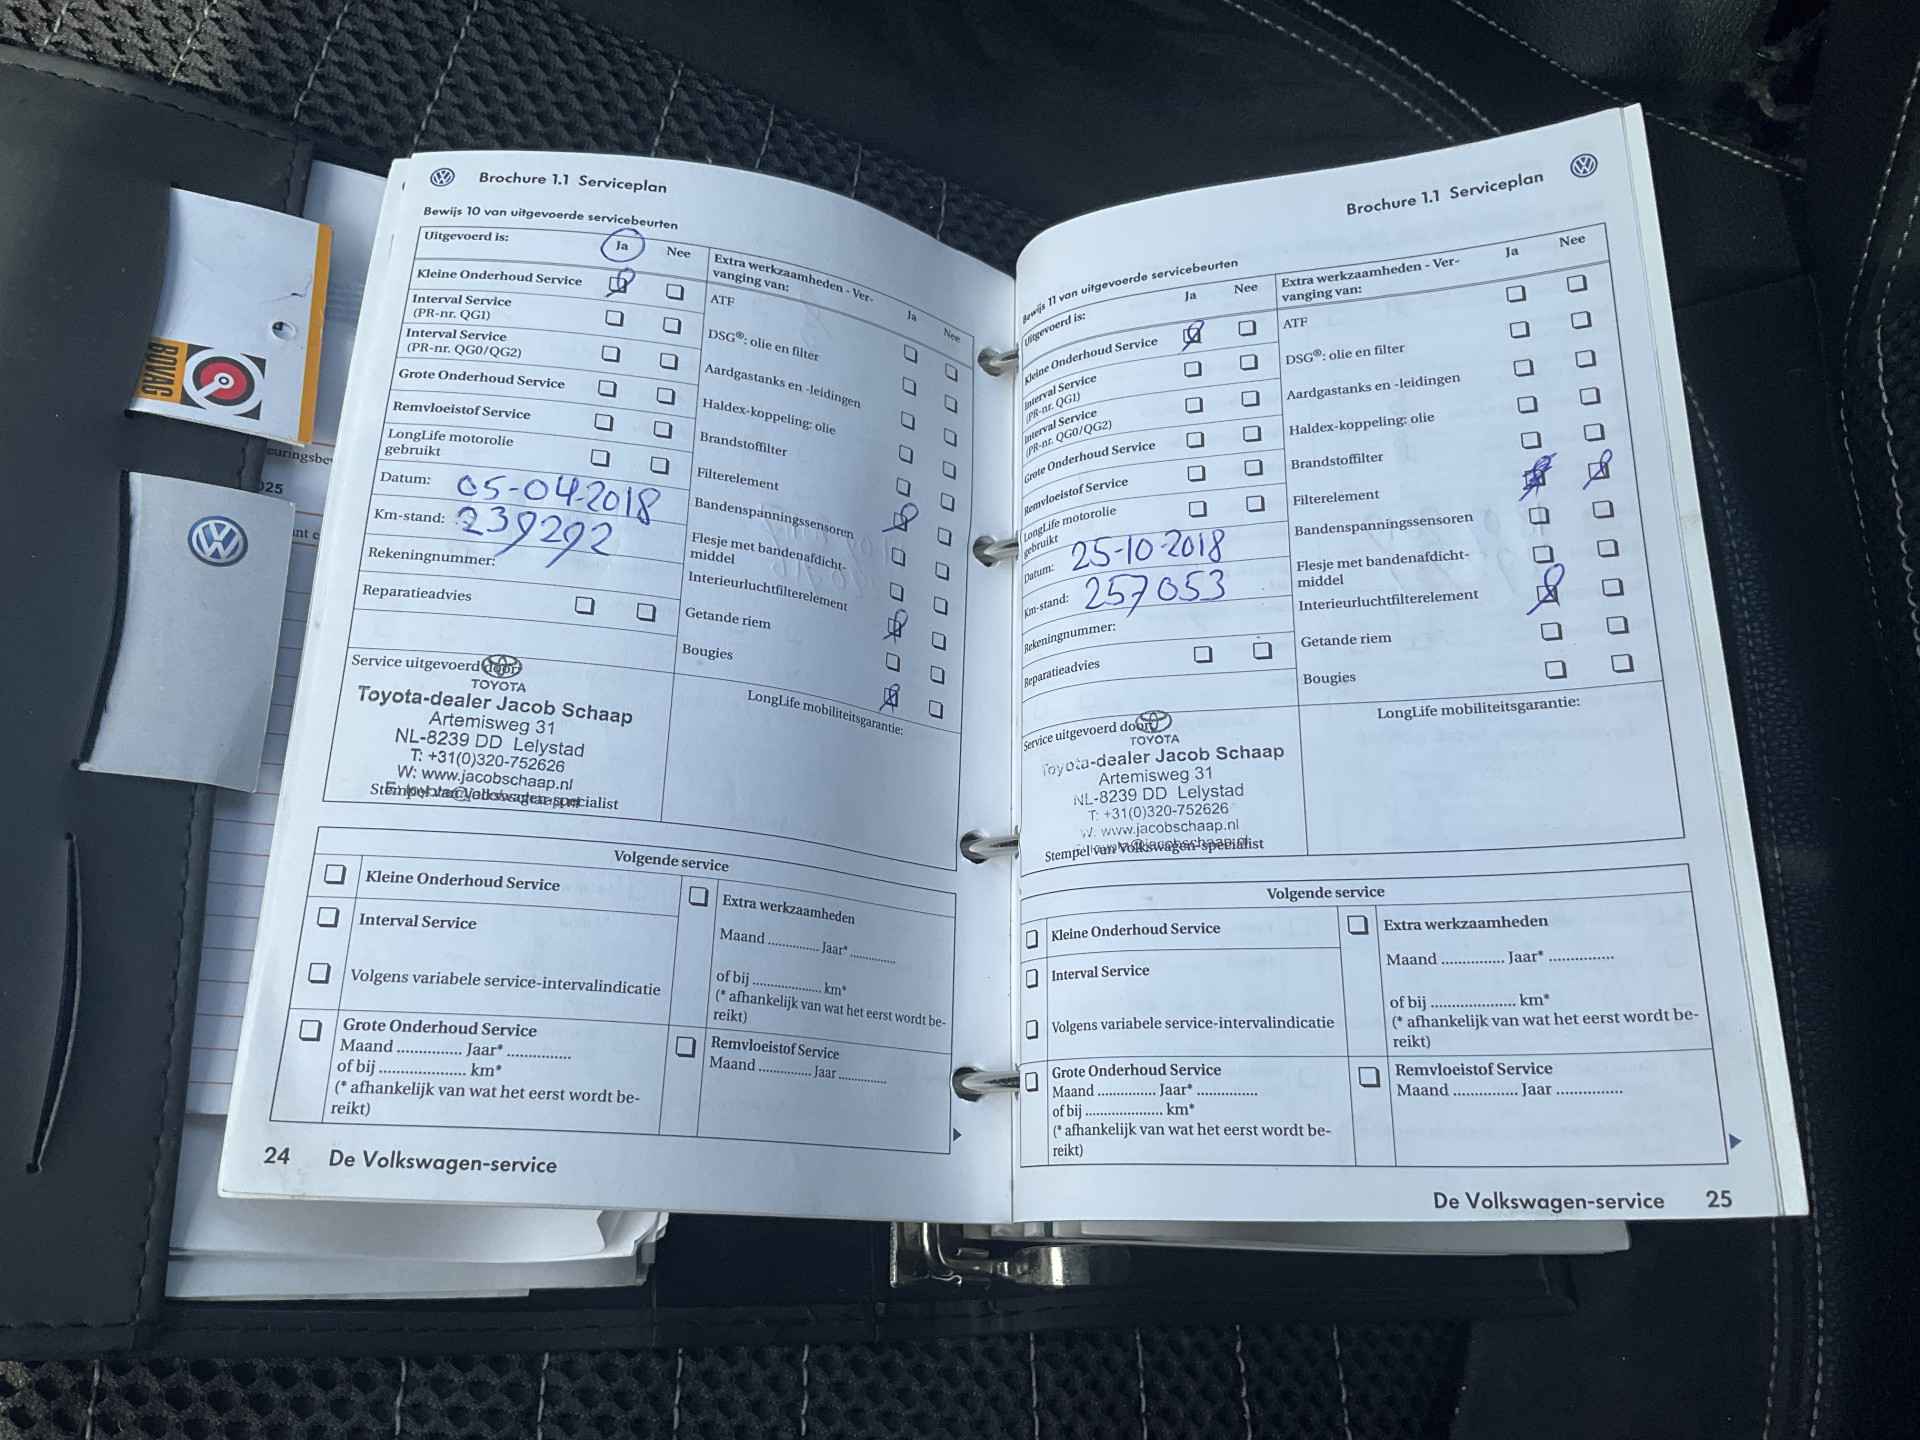 Brochure 1.1 Serviceplan
Bewijs 10 van uitgevoerde servicebeurten
Uitgevoerd is:
Ja
Nee
Kleine Onderhoud Service
Interval Service
(PR-nr. QG1)
Interval Service
(PR-nr. QG0/QG2)
Grote Onderhoud Service
Remvloeistof Service
LongLife motorolie
gebruikt
Datum: 05-04-2018
Km-stand: 239292
Rekeningnummer:
Reparatieadvies
Extra werkzaamheden - Ver-
vanging van:
Ja
Nee
ATF
DSG®: olie en filter
Aardgastanks en -leidingen
Haldex-koppeling: olie
Brandstoffilter
Filterelement
Bandenspanningssensoren
Flesje met bandenafdicht-
middel
Interieurluchtfilterelement
Getande riem
Bougies
Service uitgevoerd door:
TOYOTA
Toyota-dealer Jacob Schaap
Artemisweg 31
NL-8239 DD Lelystad
T: +31(0)320-752626
W: www.jacobschaap.nl
Stempel van Volkswagen-specialist
LongLife mobiliteitsgarantie:
Volgende service
Kleine Onderhoud Service
Interval Service
Volgens variabele service-intervalindicatie
Grote Onderhoud Service
Maand ............... Jaar* ...............
of bij .................... km*
(* afhankelijk van wat het eerst wordt be-
reikt)
Extra werkzaamheden
Maand ............... Jaar* ...............
of bij .................... km*
(* afhankelijk van wat het eerst wordt be-
reikt)
Remvloeistof Service
Maand ............... Jaar ...............
24 De Volkswagen-service
Brochure 1.1 Serviceplan
Bewijs 11 van uitgevoerde servicebeurten
Uitgevoerd is:
Ja
Nee
Kleine Onderhoud Service
Interval Service
(PR-nr. QG1)
Interval Service
(PR-nr. QG0/QG2)
Grote Onderhoud Service
Remvloeistof Service
LongLife motorolie
gebruikt
Datum: 25-10-2018
Km-stand: 257053
Rekeningnummer:
Reparatieadvies
Extra werkzaamheden - Ver-
vanging van:
Ja
Nee
ATF
DSG®: olie en filter
Aardgastanks en -leidingen
Haldex-koppeling: olie
Brandstoffilter
Filterelement
Bandenspanningssensoren
Flesje met bandenafdicht-
middel
Interieurluchtfilterelement
Getande riem
Bougies
Service uitgevoerd door:
TOYOTA
Toyota-dealer Jacob Schaap
Artemisweg 31
NL-8239 DD Lelystad
T: +31(0)320-752626
W: www.jacobschaap.nl
Stempel van Volkswagen-specialist
LongLife mobiliteitsgarantie:
Volgende service
Kleine Onderhoud Service
Interval Service
Volgens variabele service-intervalindicatie
Grote Onderhoud Service
Maand ............... Jaar* ...............
of bij .................... km*
(* afhankelijk van wat het eerst wordt be-
reikt)
Extra werkzaamheden
Maand ............... Jaar* ...............
of bij .................... km*
(* afhankelijk van wat het eerst wordt be-
reikt)
Remvloeistof Service
Maand ............... Jaar ...............
De Volkswagen-service 25
BOVAG